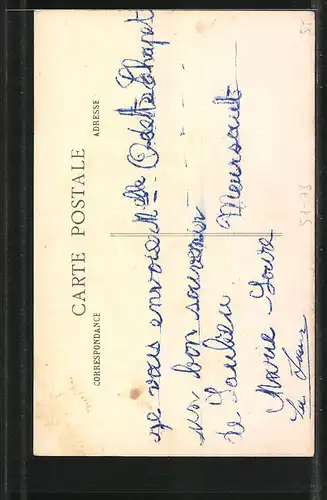 CARTE POSTALE
CORRESPONDANCE
ADRESSE
je vous envoie
un bon souvenir
de
Marie-Louise
Mlle Odette Chapet
Meursault